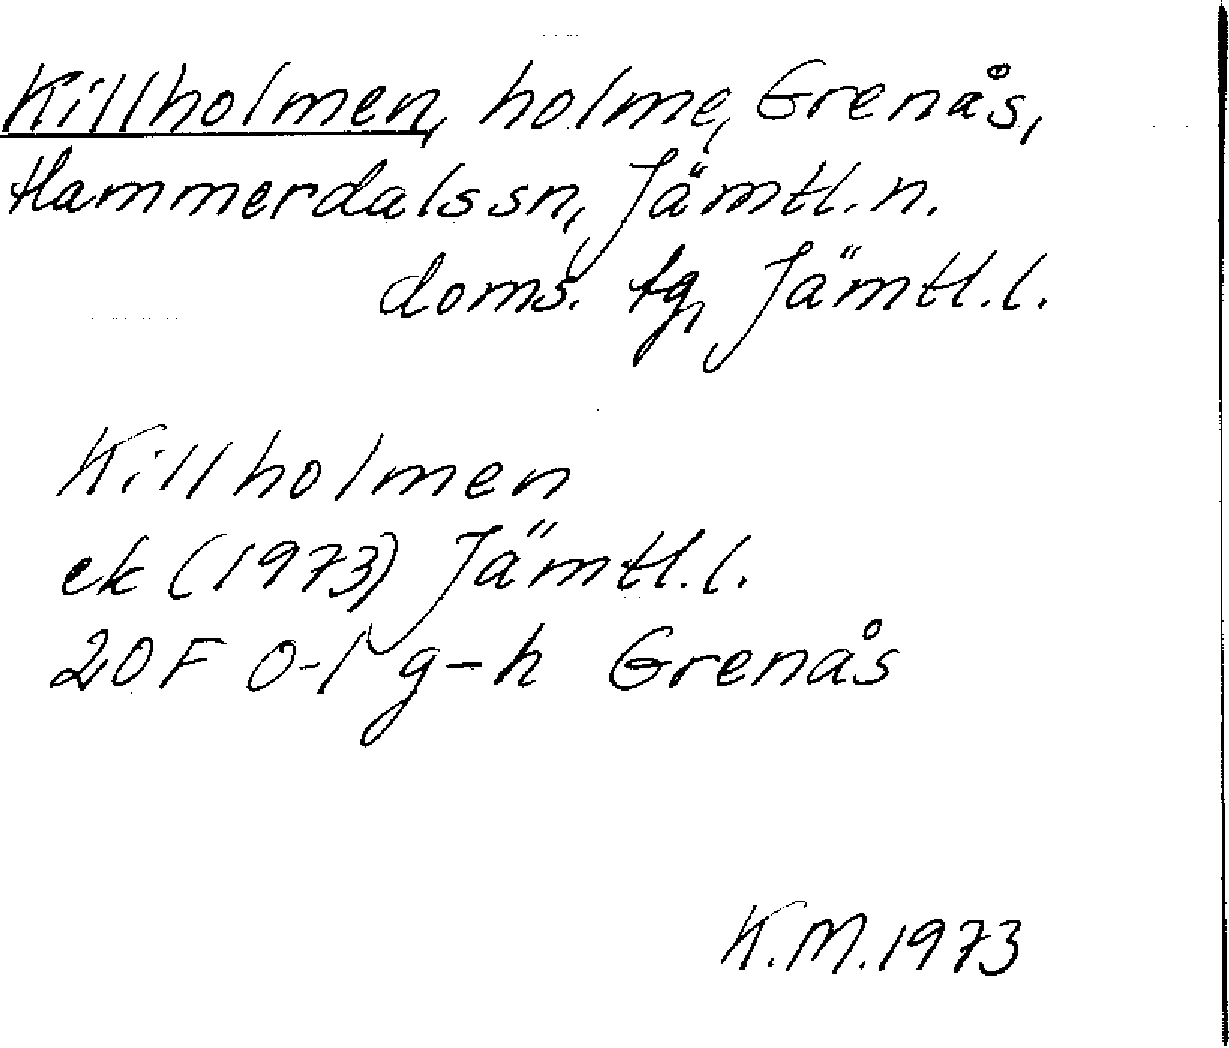 Killholmen, holme, Grenås,
Hammerdals sn, Jämtl. n.
doms. tg, Jämtl. l.
Killholmen
ek (1973) Jämtl. l.
20F 0-1 g-h Grenås
K.M. 1973